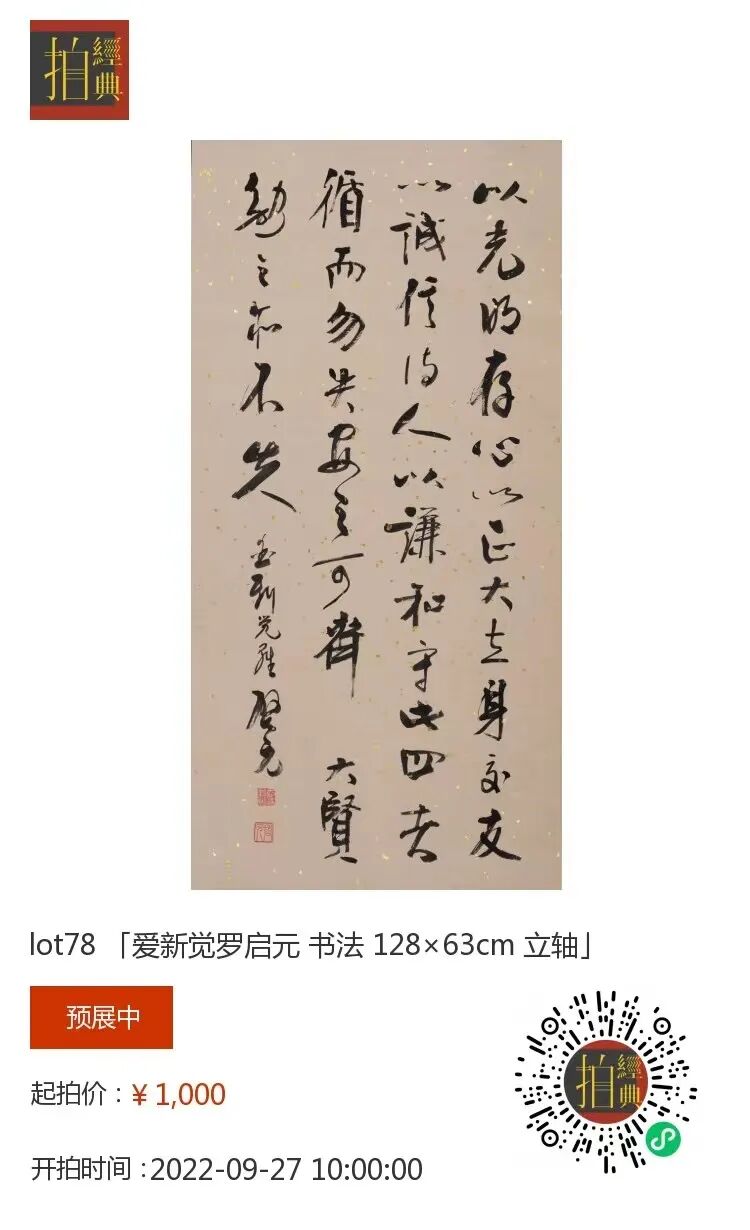 拍經典
以光明存心以正大立身交友
以誠信待人以謙和守此四者
循而勿失安之可齊大賢
勉之亦不失 爱新觉羅 啓元
lot78 「爱新觉罗启元 书法 128×63cm 立轴」
预展中
起拍价：¥ 1,000
开拍时间：2022-09-27 10:00:00
拍經典